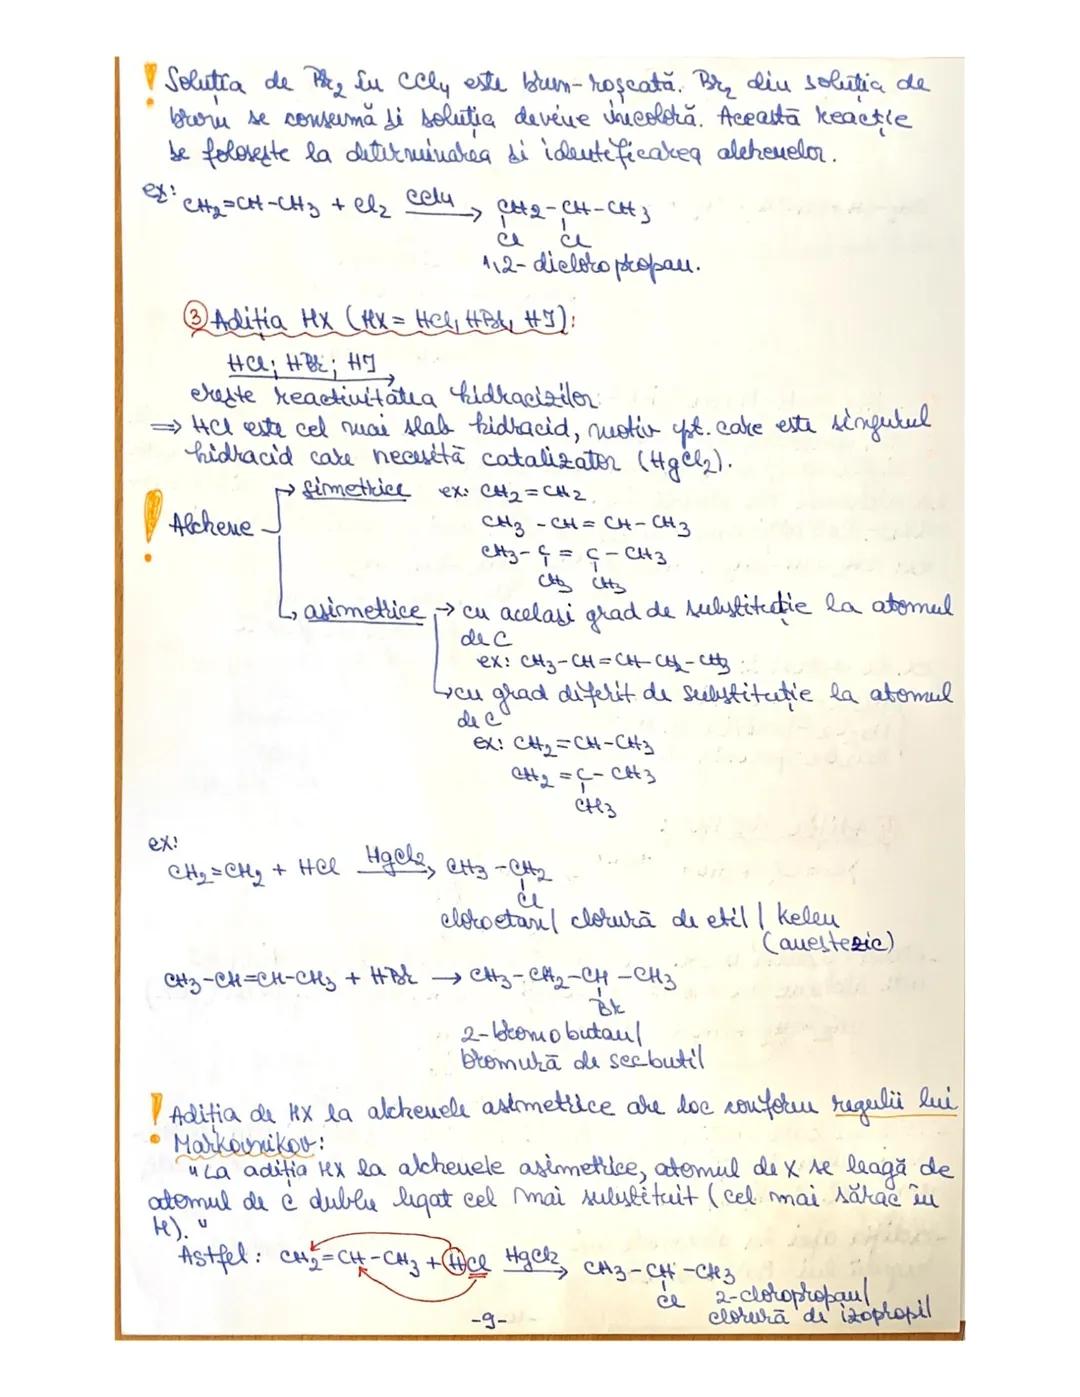 ! Soluția de Br2 în CCl4 este brun-roșcată. Br2 din soluția de
brom se consumă și soluția devine incoloră. Această reacție
se folosește la determinarea și identificarea alchenelor.
ex: CH2=CH-CH3 + Cl2 CCl4→ CH2-CH-CH3
Cl Cl
1,2-dicloropropan.
③ Adiția HX (HX = HCl, HBr, HI):
HCl; HBr; HI
crește reactivitatea hidracizilor
⇒ HCl este cel mai slab hidracid, motiv pt. care este singurul
hidracid care necesită catalizator (HgCl2).
→ simetrice ex: CH2=CH2
! Alchene CH3-CH=CH-CH3
CH3-C=C-CH3
CH3 CH3
→ asimetrice → cu același grad de substituție la atomul
de C
ex: CH3-CH=CH-CH2-CH3
→ cu grad diferit de substituție la atomul
de C
ex: CH2=CH-CH3
CH2=C-CH3
CH3
ex:
CH2=CH2 + HCl HgCl2→ CH3-CH2
Cl
cloroetan/ clorură de etil / kelen
(anestezic)
CH3-CH=CH-CH3 + HBr → CH3-CH2-CH-CH3
Br
2-bromobutan/
bromură de secbutil
! Adiția de HX la alchenele asimetrice are loc conform regulii lui
Markovnikov:
"La adiția HX la alchenele asimetrice, atomul de X se leagă de
atomul de C dublu legat cel mai substituit (cel mai sărac în
H)."
Astfel: CH2=CH-CH3 + HCl HgCl2→ CH3-CH-CH3
Cl 2-cloropropan/
clorură de izopropil
-9-